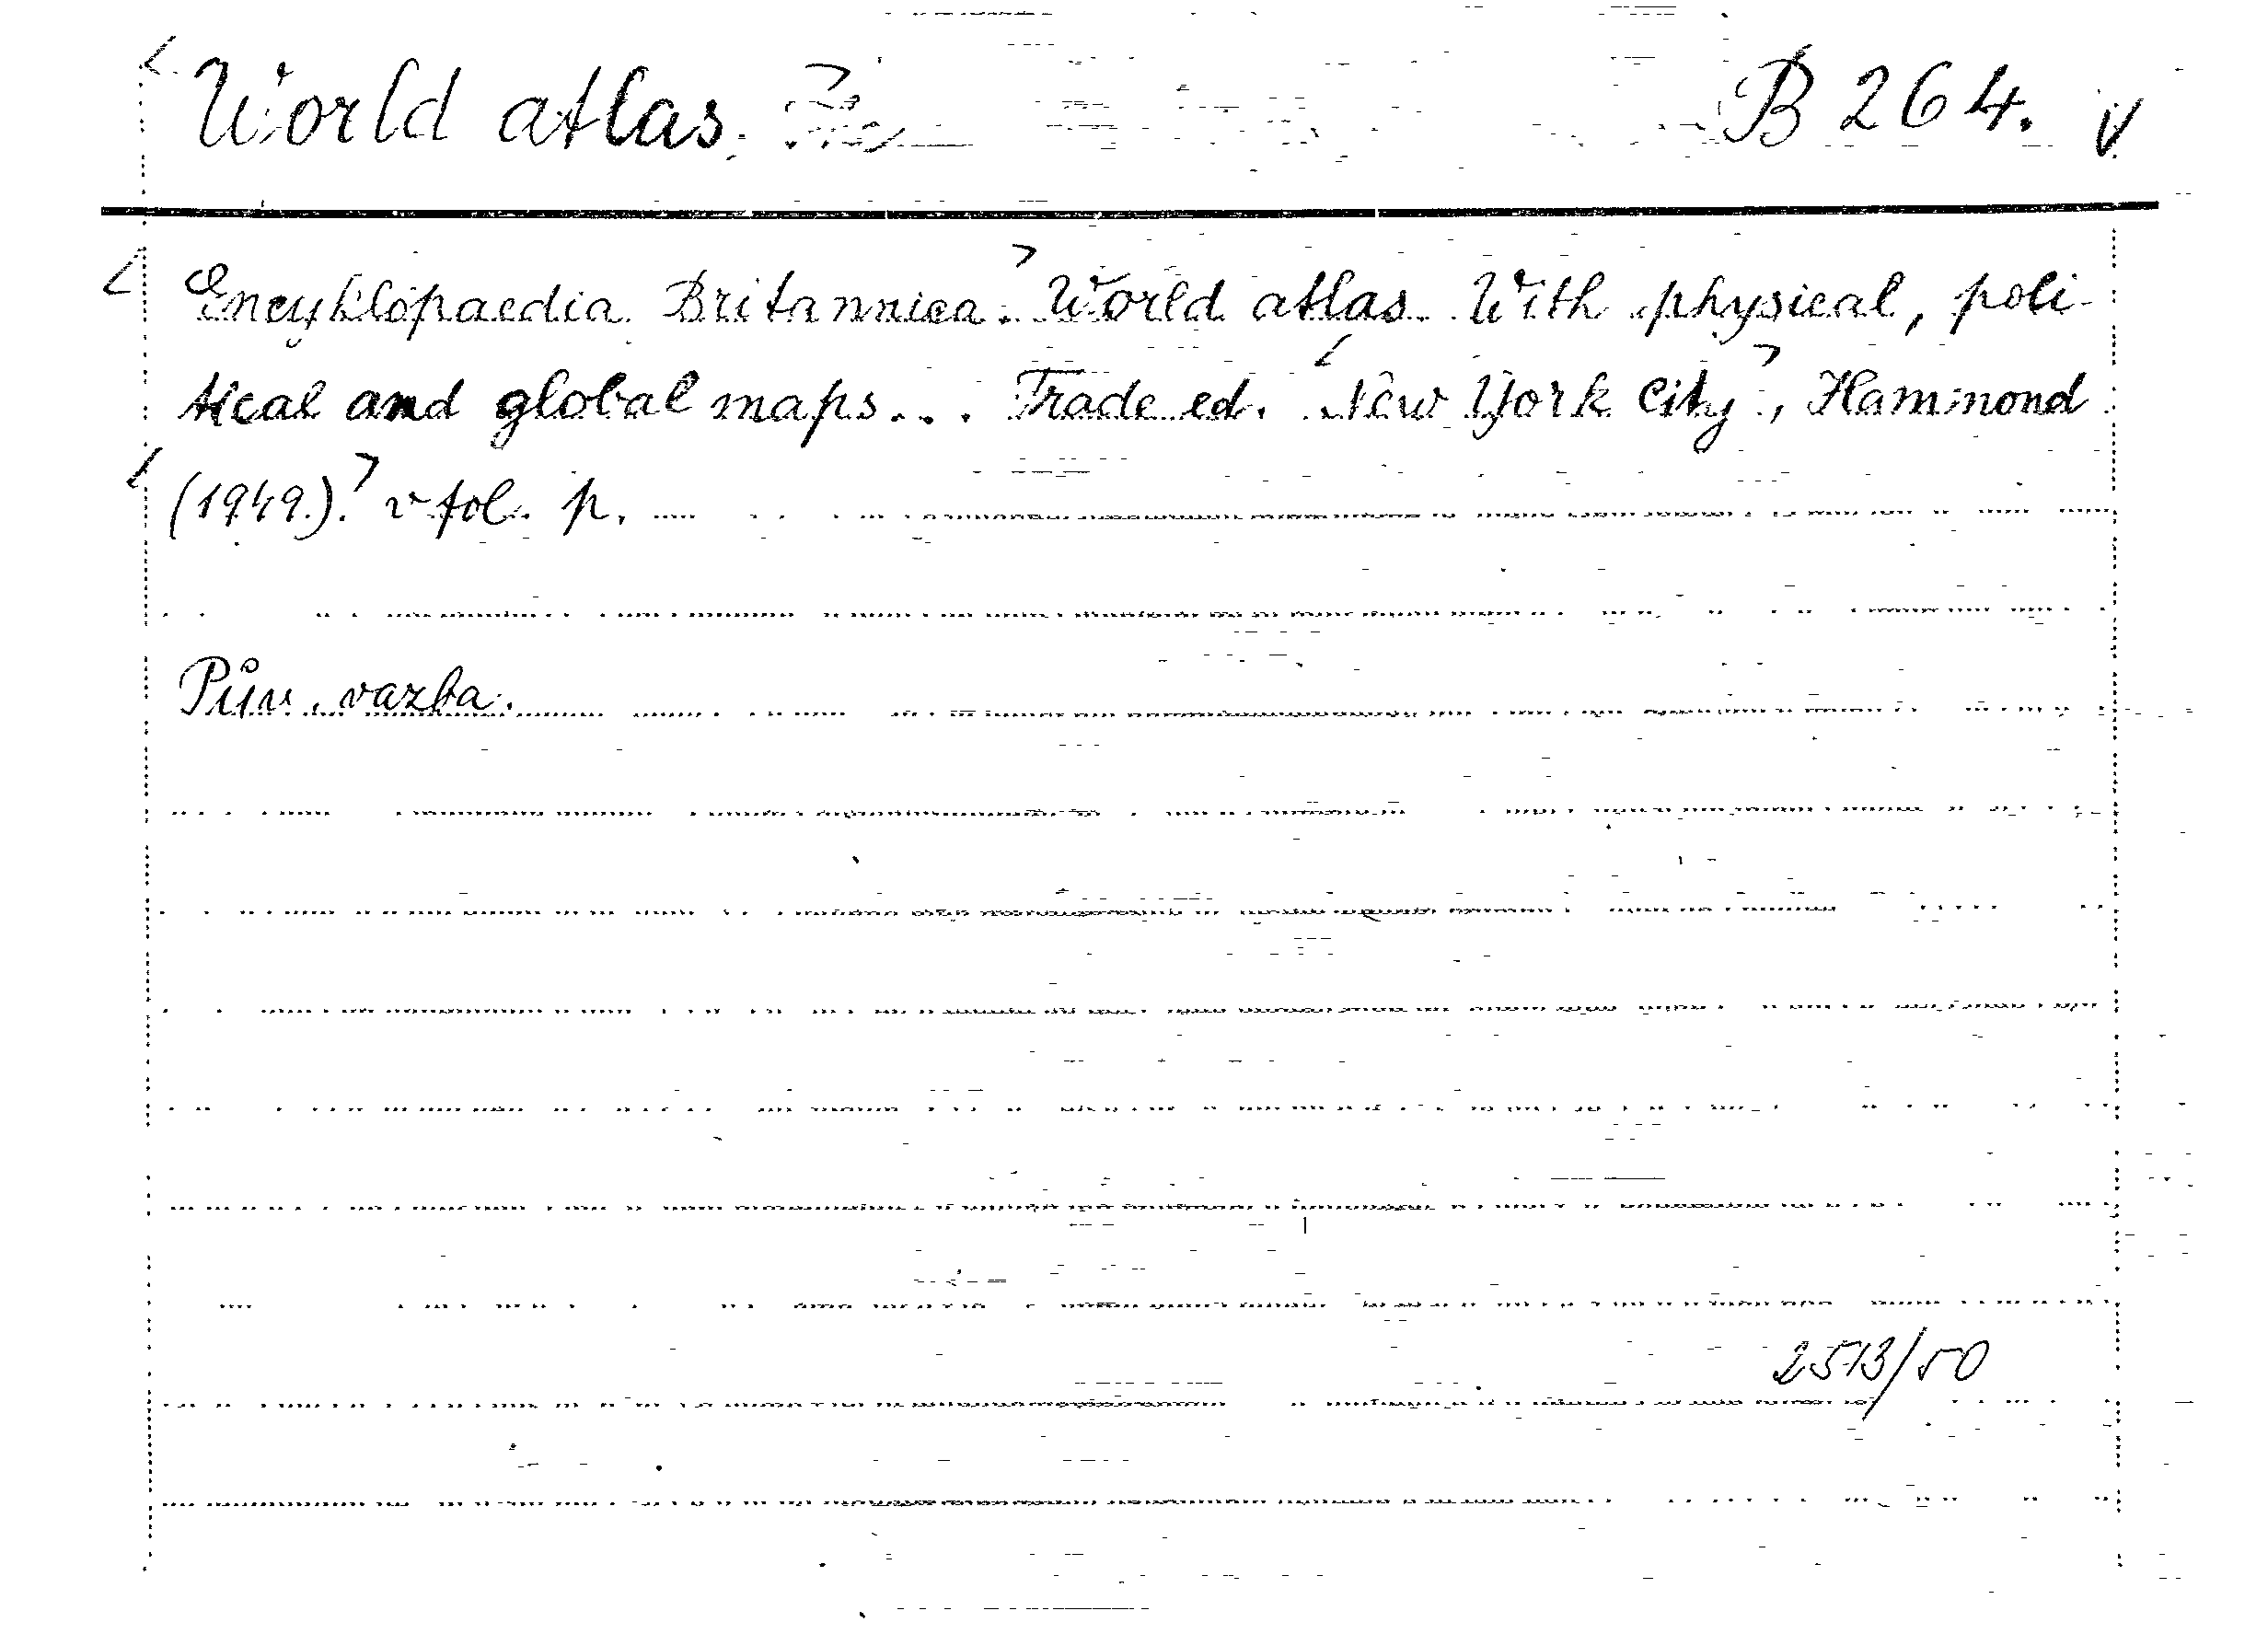 World atlas. B 264. V
Encyklopaedia Britannica. World atlas. With physical, poli-
tical and global maps... Trade ed. New York City, Hammond
(1949). v fol. p.
Pův. vazba.
2513/50